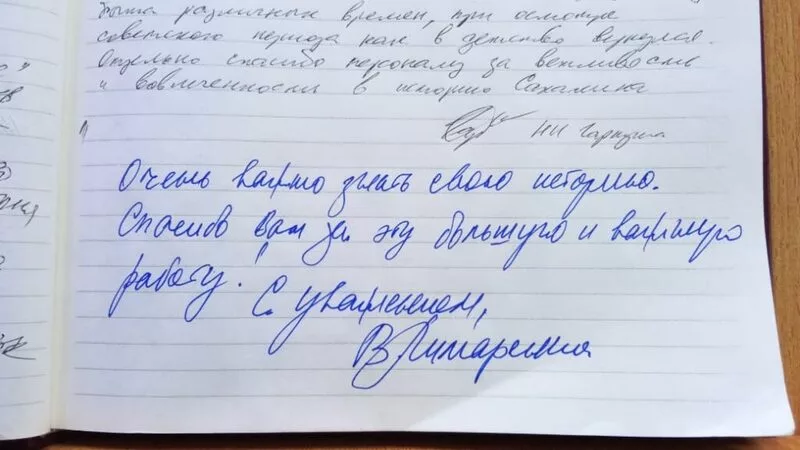 быта различных времен, при осмотре
советского периода как в детство вернулся.
Отдельно спасибо персоналу за вежливость
и вовлеченность в историю Сахалина
НИ
Очень важно знать свою историю.
Спасибо Вам за эту большую и важную
работу!
С уважением,
В Лимаренко